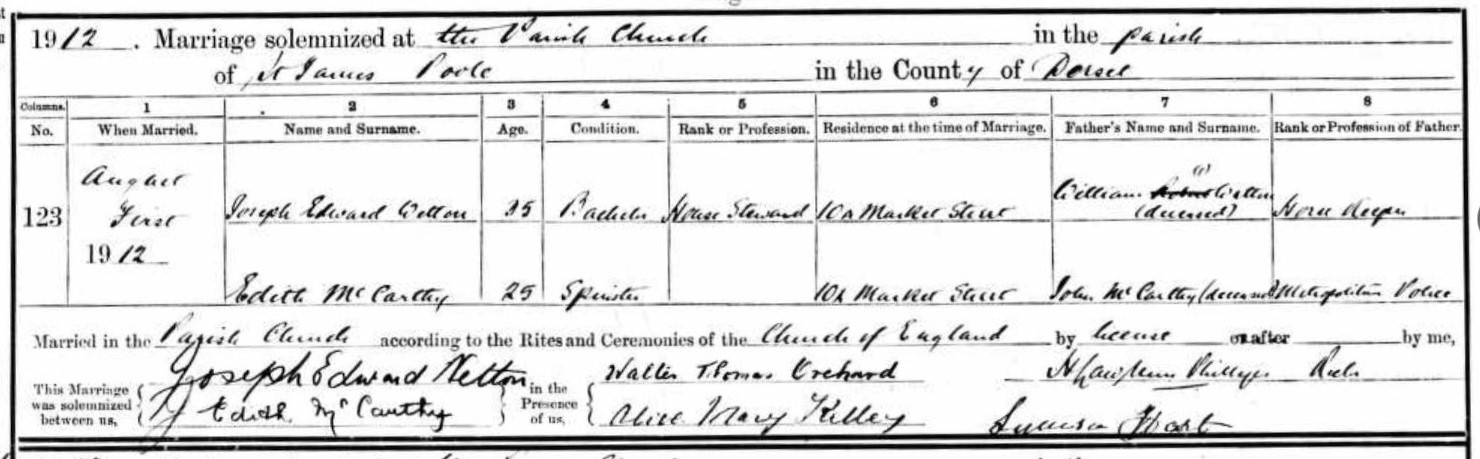 1912. Marriage solemnized at the Parish Church in the parish
of St James Poole in the County of Dorset
Columns. 1 2 3 4 5 6 7 8
No. When Married. Name and Surname. Age. Condition. Rank or Profession. Residence at the time of Marriage. Father's Name and Surname. Rank or Profession of Father.
123 August First 1912 Joseph Edward Wetton 35 Bachelor House Steward 10A Market Street William Wetton (deceased) Horse Keeper
Edith McCarthy 25 Spinster 10A Market Street John McCarthy (deceased) Metropolitan Police
Married in the Parish Church according to the Rites and Ceremonies of the Church of England by license or after by me,
This Marriage was solemnized between us, Joseph Edward Wetton in the Presence of us, Walter Thomas Orchard Phillips
Edith McCarthy Alice Mary Kelley